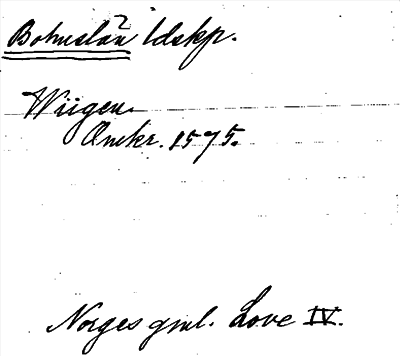 Bohuslän ldskp.
Wiigen.
Omkr. 1575.
Norges gml. Love IV.